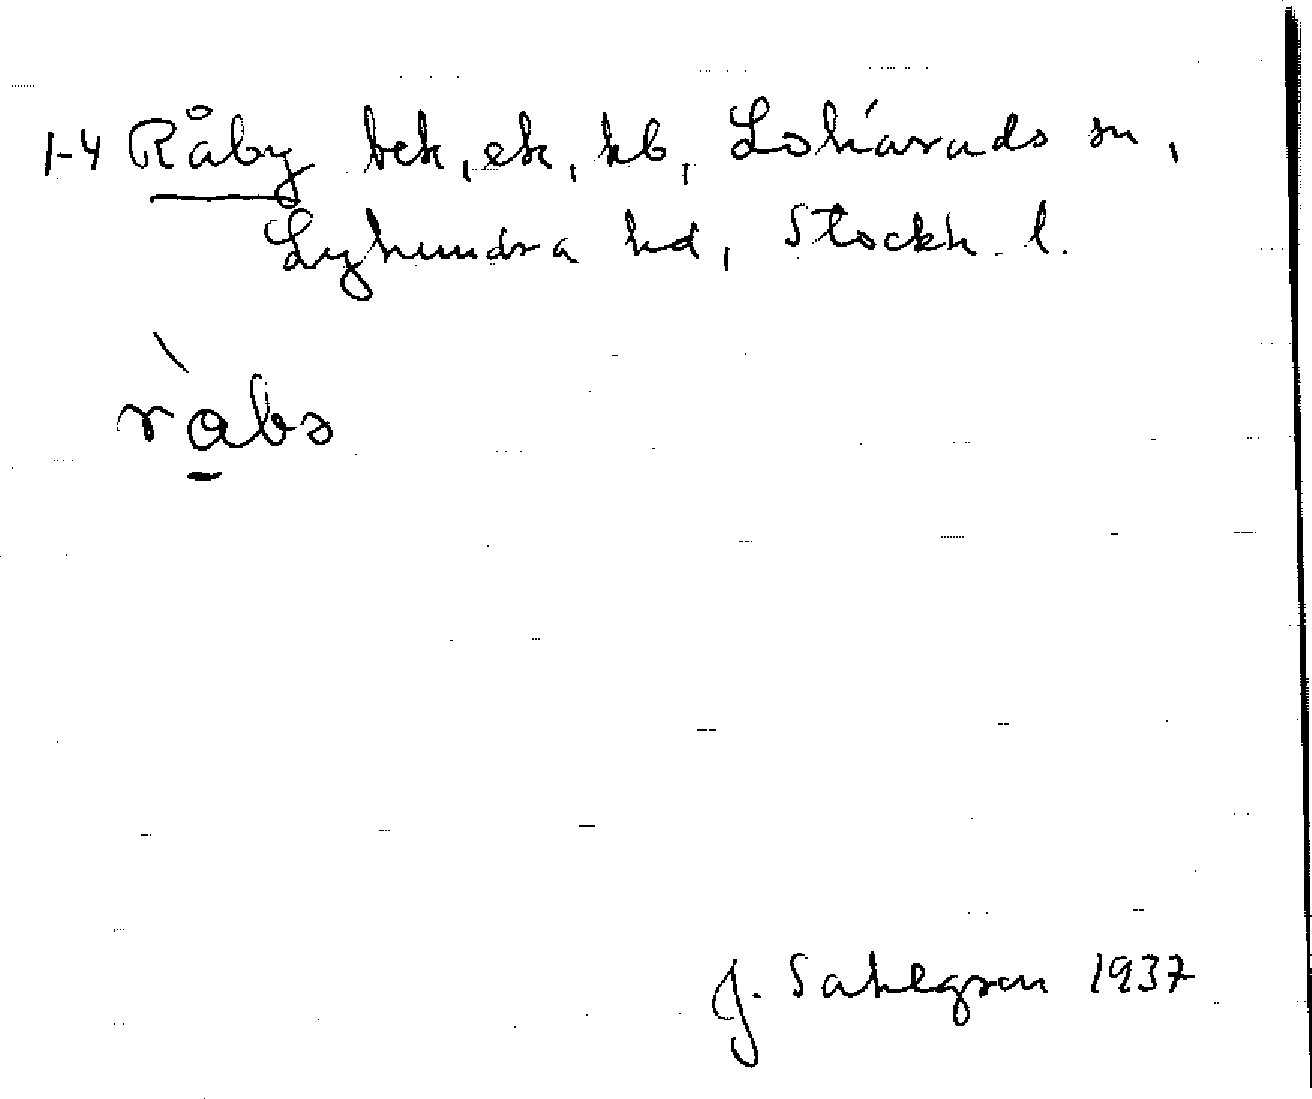 1-4 Råby bek, ek, kb, Lohärads sn,
Lyhundra hd, Stockh. l.
ràbs
J. Sahlgren 1937